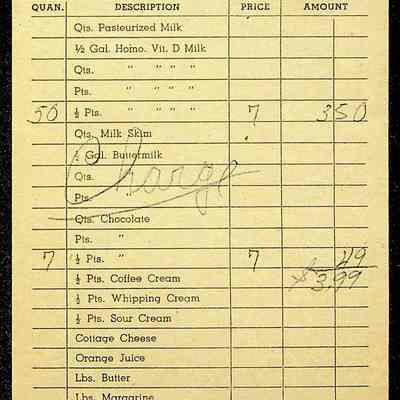 QUAN. DESCRIPTION PRICE AMOUNT
Qts. Pasteurized Milk
½ Gal. Homo. Vit. D Milk
Qts. " " " "
Pts. " " " "
50 ½ Pts. " " " " 7 3 50
Qts. Milk Skim
½ Gal. Buttermilk
Qts.
Charge
Pts.
Qts. Chocolate
Pts. "
7 ½ Pts. " 7 49
½ Pts. Coffee Cream $3.99
½ Pts. Whipping Cream
½ Pts. Sour Cream
Cottage Cheese
Orange Juice
Lbs. Butter
Lbs. Margarine